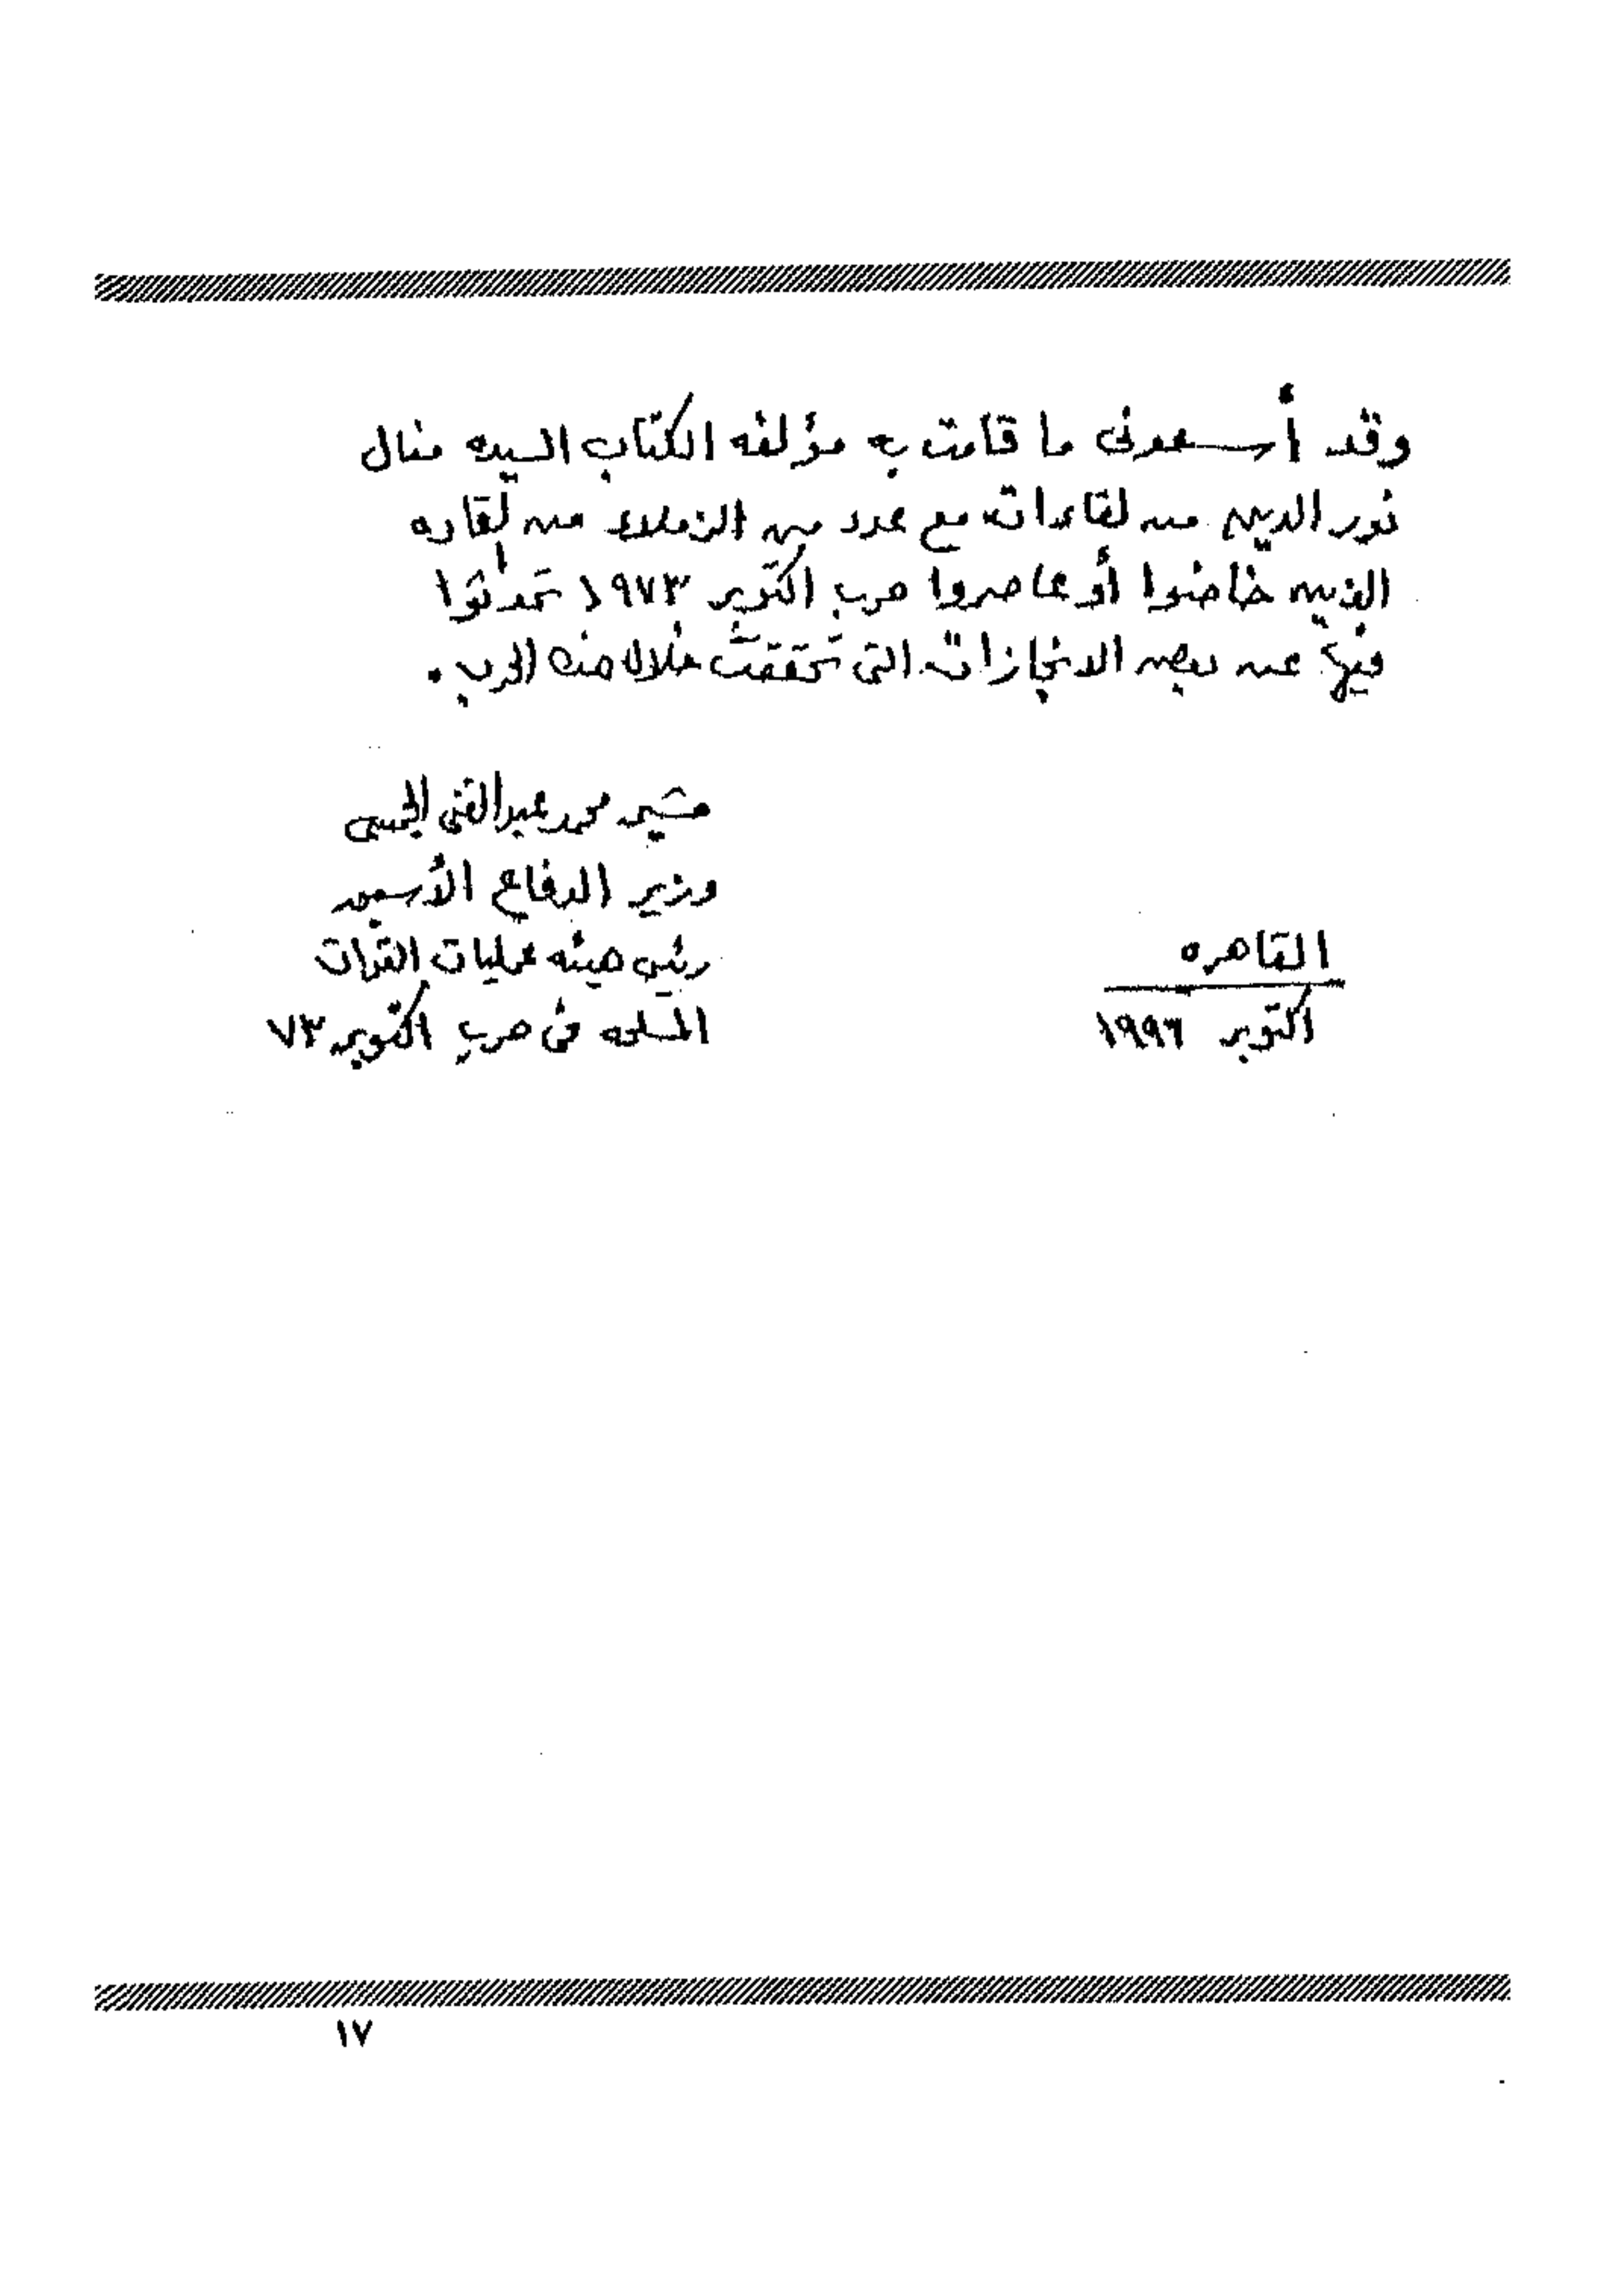 وقد أسعدنى ما قامت به مؤلفه الكتاب السيده منال
نور الدين من لقاءات مع عدد من الزملاء من القاده
الذين خاضوا أو عاصروا حرب اكتوبر ١٩٧٣ تحدثوا
فيها عن بعض الانجازات التى تحققت خلال هذه الحرب .
مشير محمد عبد الغنى الجمسى
وزير الدفاع الأسبق
رئيس هيئه عمليات القوات
المسلحه فى حرب اكتوبر ٧٣
القاهره
اكتوبر ١٩٩٦
١٧